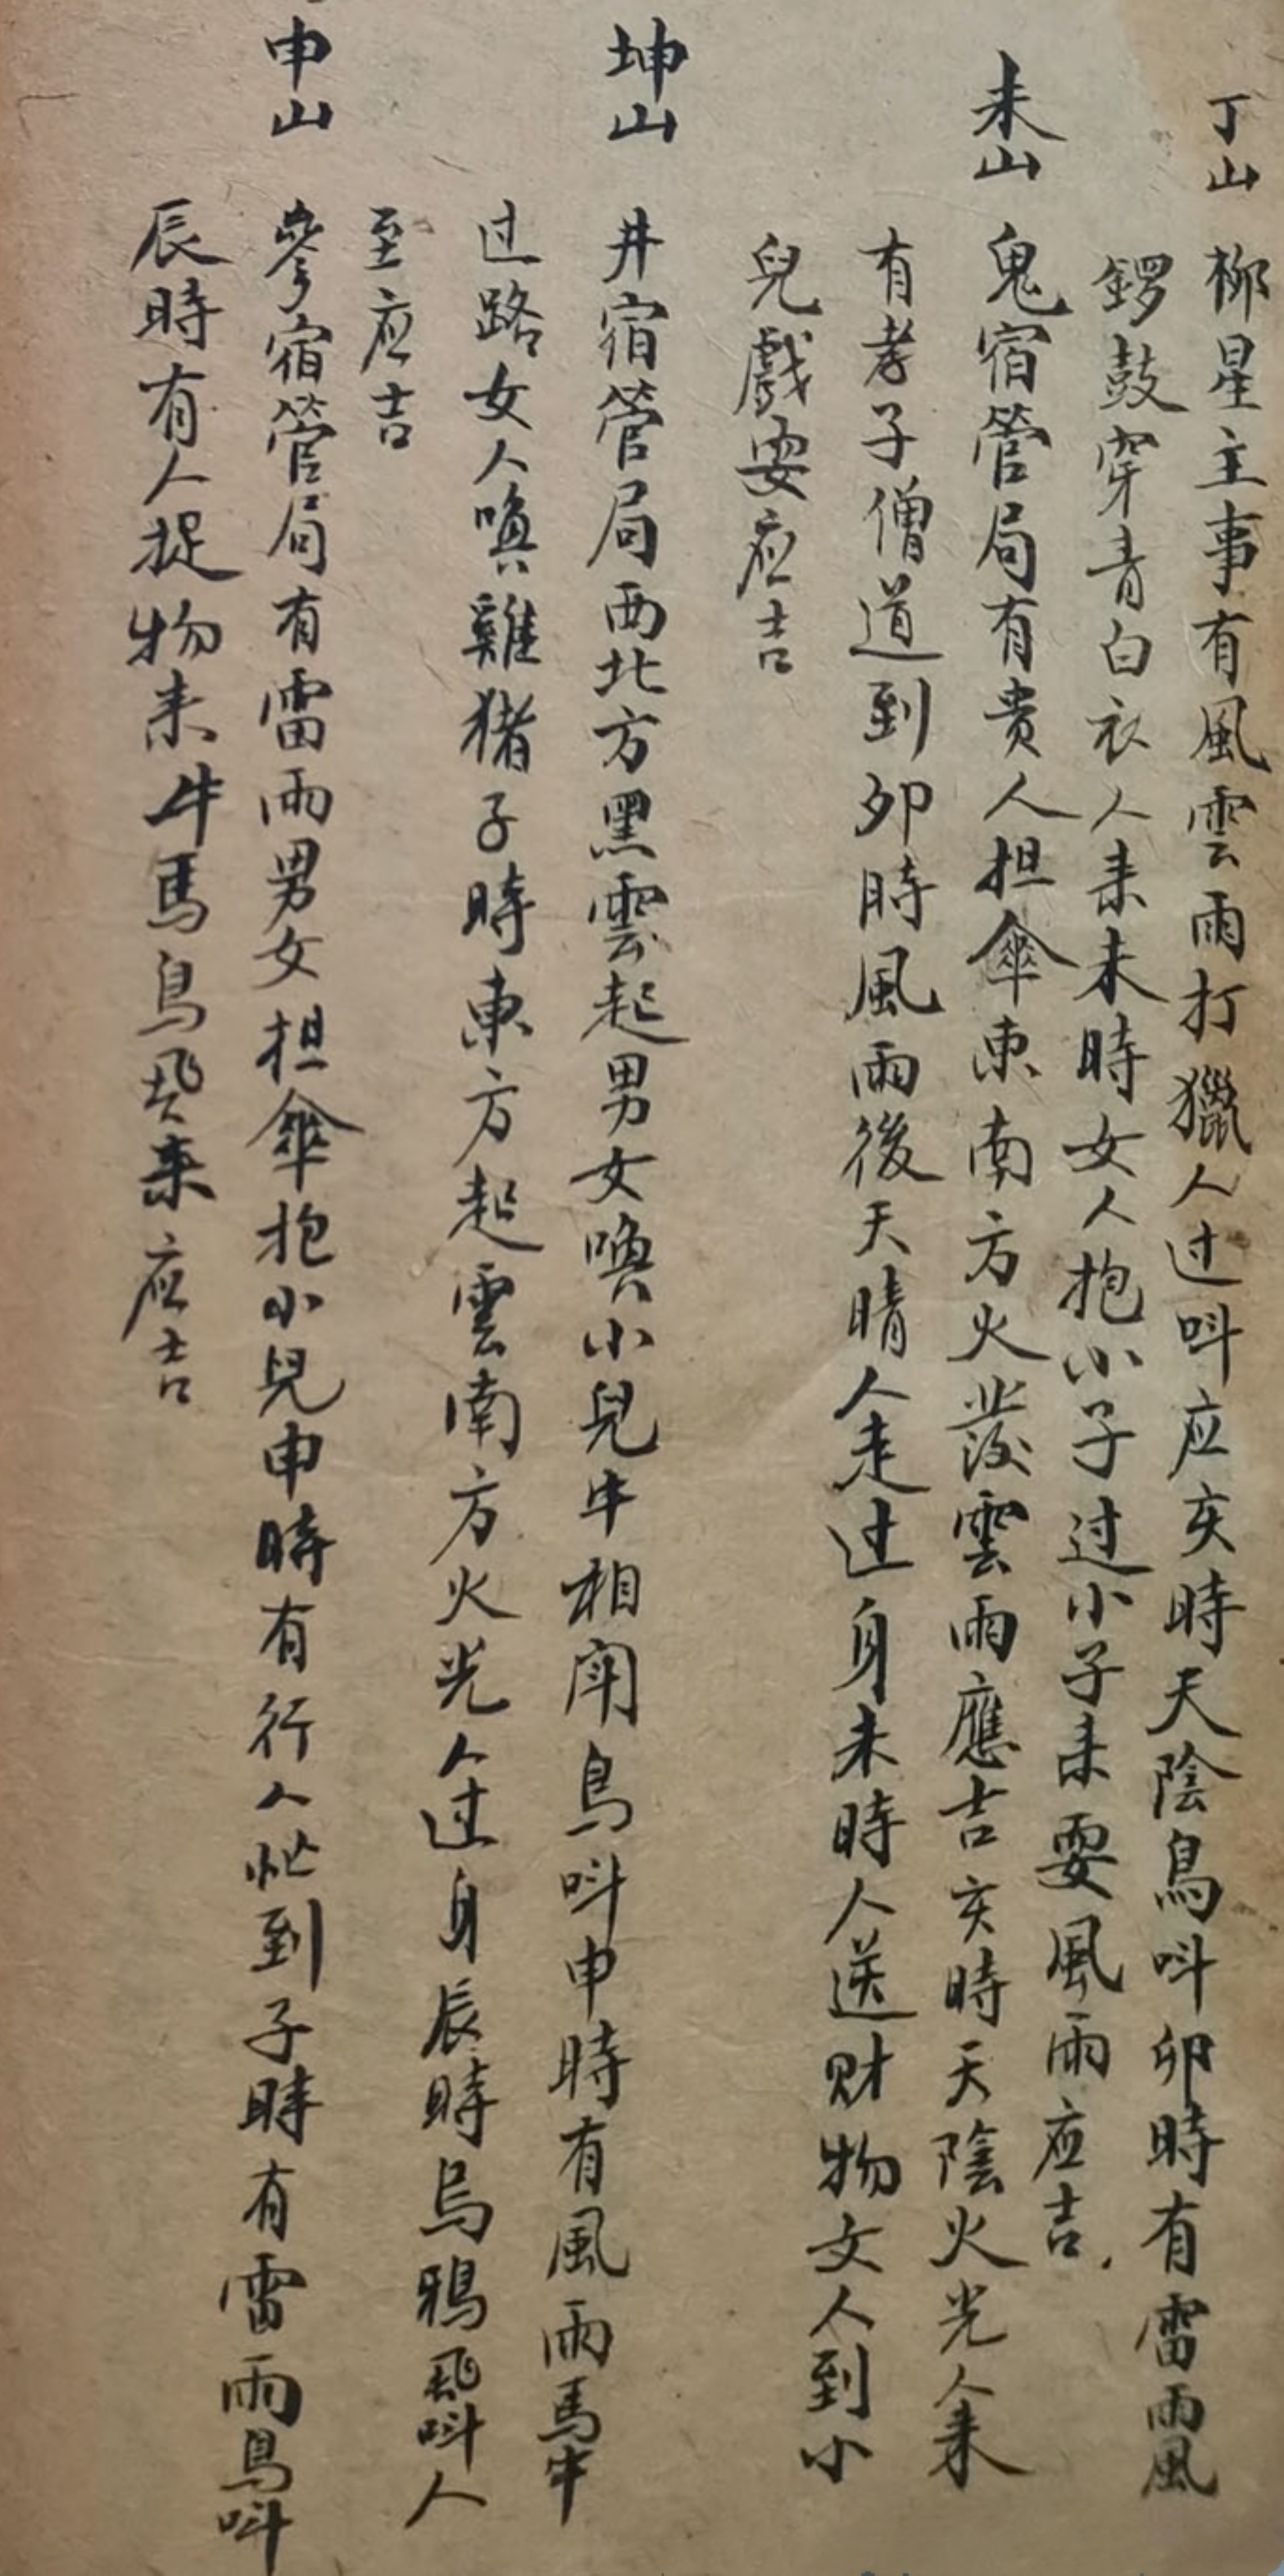 丁山 柳星主事有風雲雨打獵人过呌应亥時天陰鳥呌卯時有雷雨風
鑼鼓穿青白衣人来未時女人抱小子过小子来耍風雨应吉
未山 鬼宿管局有贵人担傘東南方火發雲雨應吉亥時天陰火光人来
有孝子僧道到卯時風雨後天晴人走过身未時人送财物女人到小
兒戲耍应吉
坤山 井宿管局西北方黑雲起男女喚小兒牛相鬧鳥呌申時有風雨馬牛
过路女人喚雞猪子時東方起雲南方火光人过身辰時烏鴉飛呌人
至应吉
申山 參宿管局有雷雨男女担傘抱小兒申時有行人忙到子時有雷雨鳥呌
辰時有人捉物来牛馬鳥飛来应吉